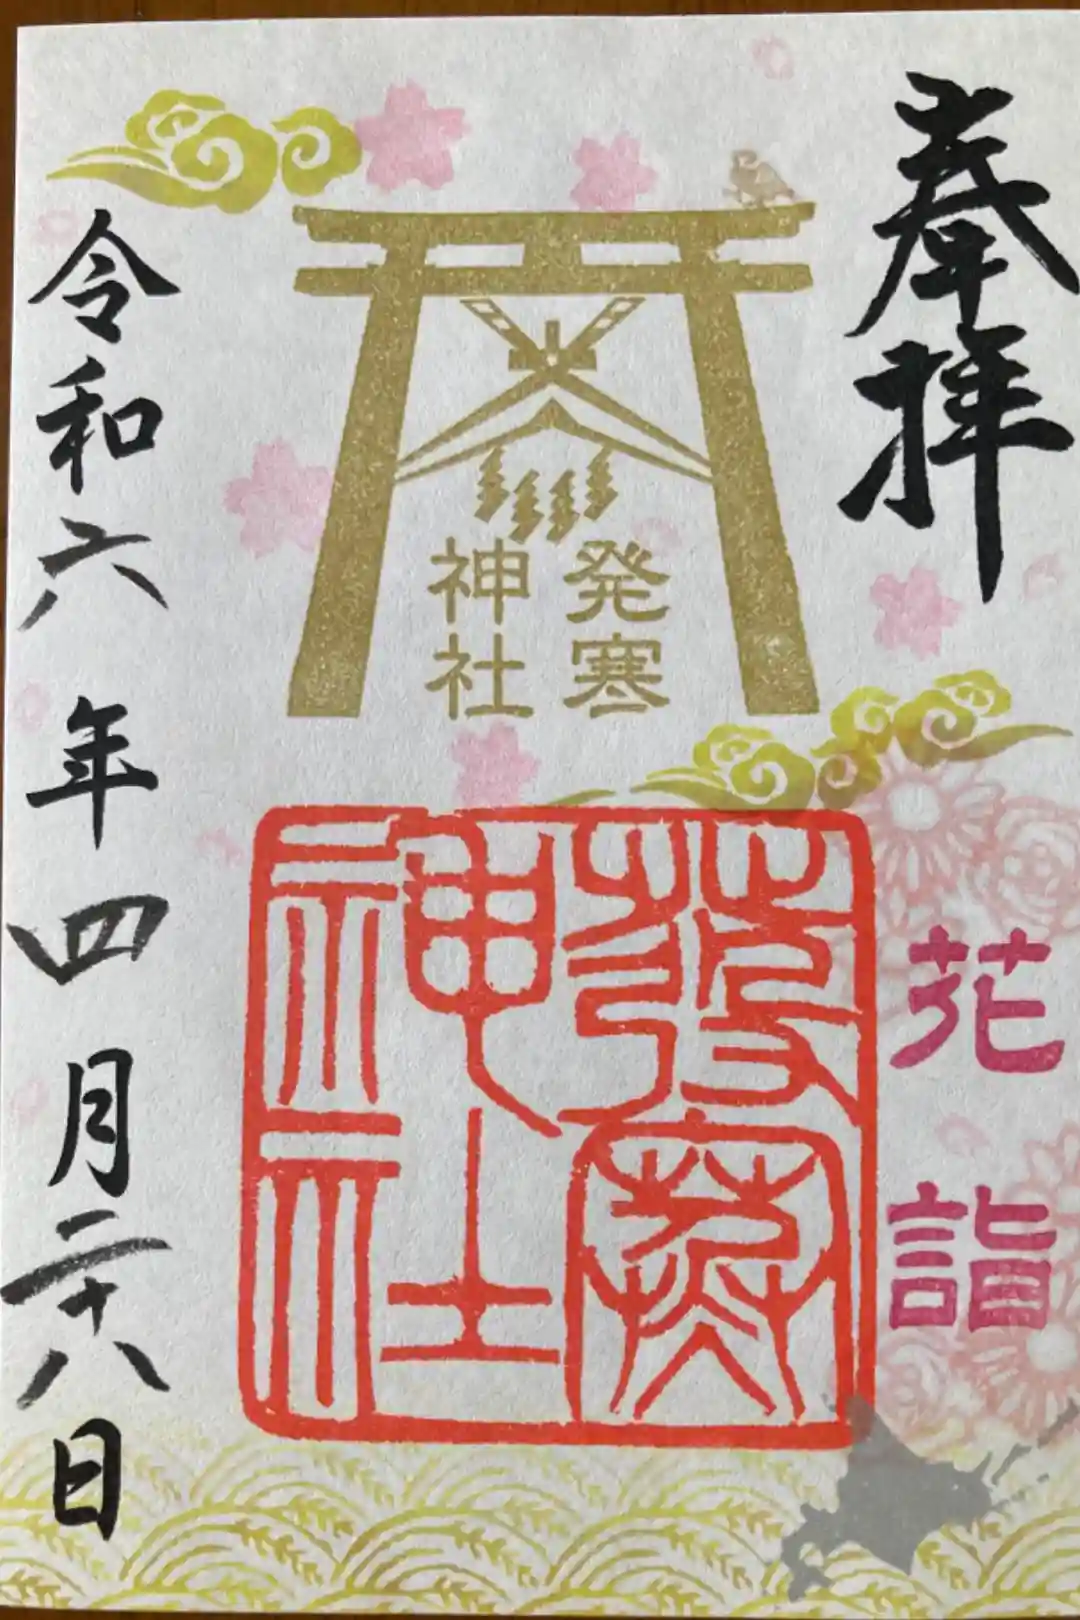 奉拝
発寒
神社
花詣
發寒
神社
令和六年四月二十八日